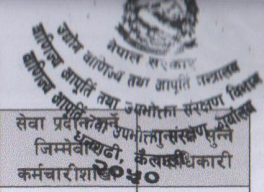 नेपाल सरकार
उद्योग वाणिज्य तथा आपूर्ति मन्त्रालय
वाणिज्य आपूर्ति तथा उपभोक्ता संरक्षण विभाग
वाणिज्य आपूर्ति तथा उपभोक्ता संरक्षण कार्यालय
धनगढी, कैलाली
सेवा प्रदान गर्ने
जिम्मेवार
कर्मचारी
गुनासो सुन्ने
अधिकारी